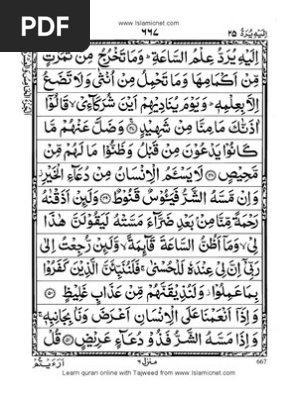 PDF
www.Islamicnet.com
اِلَيْهِ يُرَدُّ ٢٥
٦٦٧
اِلَيْهِ يُرَدُّ عِلْمُ السَّاعَةِ ؕ وَمَا تَخْرُجُ مِنْ ثَمَرٰتٍ
مِّنْ اَكْمَامِهَا وَمَا تَحْمِلُ مِنْ اُنْثٰى وَلَا تَضَعُ
اِلَّا بِعِلْمِهٖ ؕ وَيَوْمَ يُنَادِيْهِمْ اَيْنَ شُرَكَآءِيْ ۙ قَالُوْۤا
اٰذَنّٰكَ مَا مِنَّا مِنْ شَهِيْدٍ ﴿٤٧﴾ وَضَلَّ عَنْهُمْ مَّا
كَانُوْا يَدْعُوْنَ مِنْ قَبْلُ وَظَنُّوْا مَا لَهُمْ مِّنْ
مَّحِيْصٍ ﴿٤٨﴾ لَا يَسْـَٔمُ الْاِنْسَانُ مِنْ دُعَآءِ الْخَيْرِ
وَاِنْ مَّسَّهُ الشَّرُّ فَيَـُٔوْسٌ قَنُوْطٌ ﴿٤٩﴾ وَلَئِنْ اَذَقْنٰهُ
رَحْمَةً مِّنَّا مِنْۢ بَعْدِ ضَرَّآءَ مَسَّتْهُ لَيَقُوْلَنَّ هٰذَا
لِيْ ۙ وَمَاۤ اَظُنُّ السَّاعَةَ قَآئِمَةً ۙ وَّلَئِنْ رُّجِعْتُ اِلٰى
رَبِّيْۤ اِنَّ لِيْ عِنْدَهٗ لَلْحُسْنٰى ۚ فَلَنُنَبِّئَنَّ الَّذِيْنَ كَفَرُوْا
بِمَا عَمِلُوْا ۫ وَلَنُذِيْقَنَّهُمْ مِّنْ عَذَابٍ غَلِيْظٍ ﴿٥٠﴾
وَاِذَاۤ اَنْعَمْنَا عَلَى الْاِنْسَانِ اَعْرَضَ وَنَاٰ بِجَانِبِهٖ ۚ
وَاِذَا مَسَّهُ الشَّرُّ فَذُوْ دُعَآءٍ عَرِيْضٍ ﴿٥١﴾ قُلْ
اَرَءَيْتُمْ
منزل ٦
667
Learn quran online with Tajweed from www.Islamicnet.com